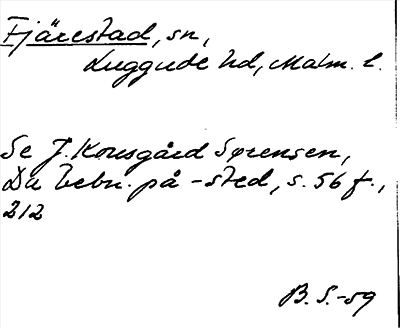 Fjärestad, sn,
Luggude hd, Malm. l.
Se J. Kousgård Sørensen,
Da bebn. på -sted, s. 56 f.,
212
B. S.-59